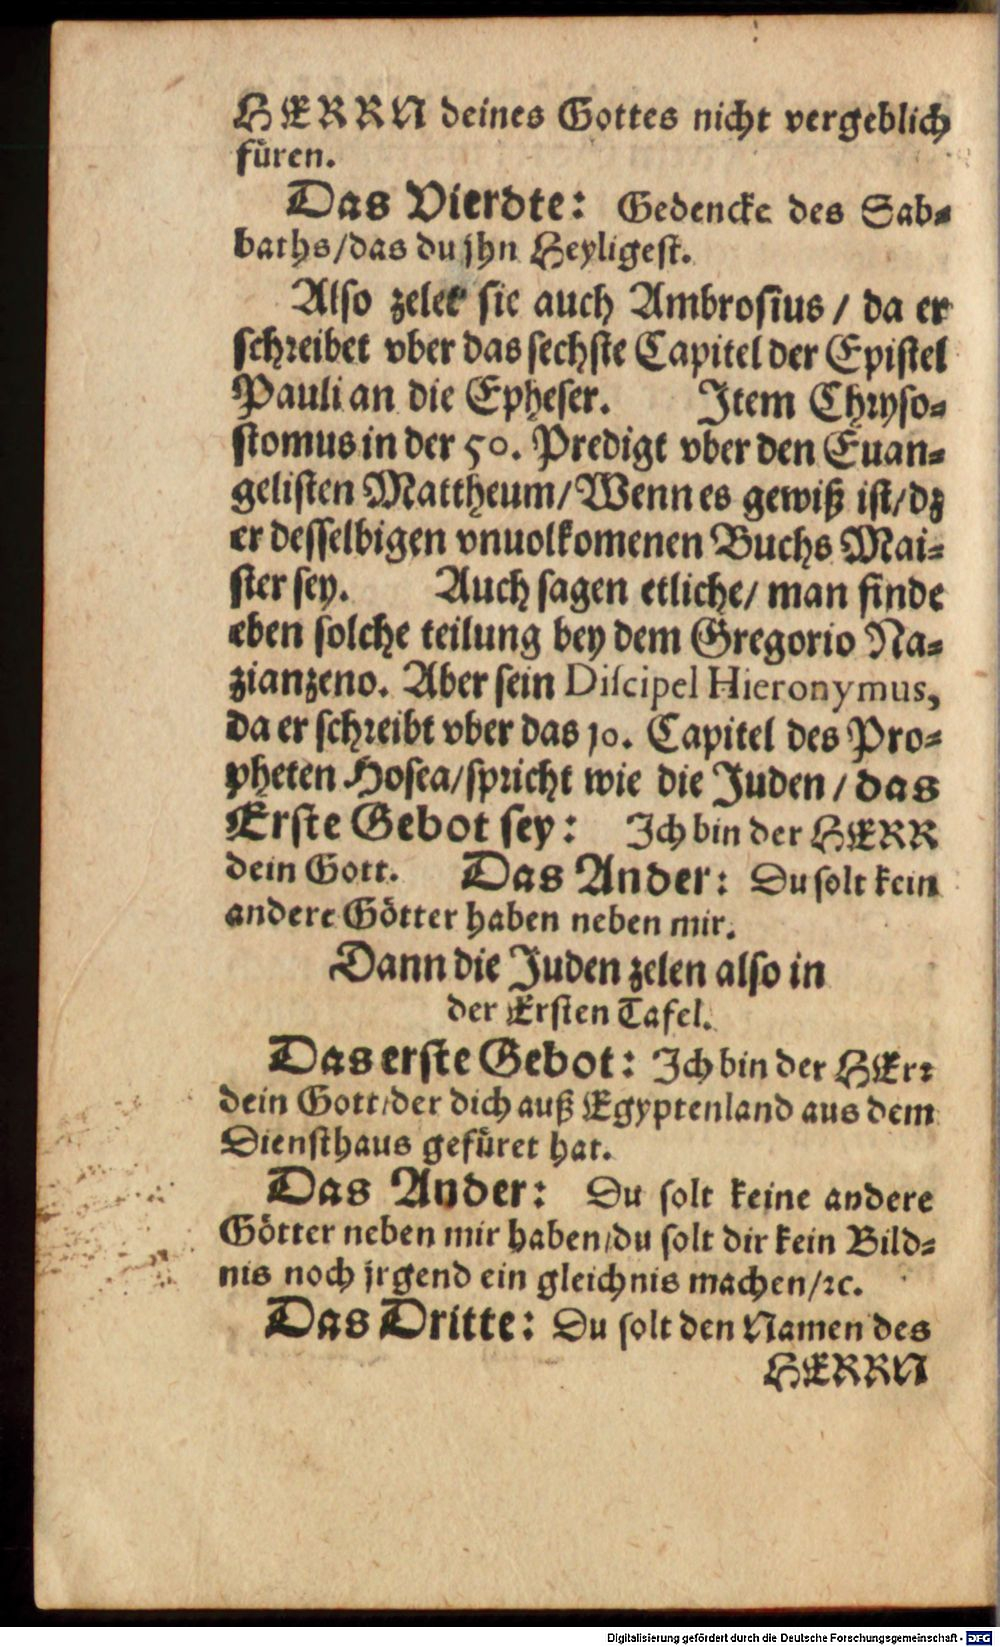 HERRN deines Gottes nicht vergeblich
füren.
Das Vierdte: Gedencke des Sab-
baths/das du jhn Heyligest.
Also zelet sie auch Ambrosius / da er
schreibet vber das sechste Capitel der Epistel
Pauli an die Epheser. Item Chryso-
stomus in der 50. Predigt vber den Euan-
gelisten Mattheum/Wenn es gewiß ist/dz
er desselbigen vnuolkomenen Buchs Mai-
ster sey. Auch sagen etliche/ man finde
eben solche teilung bey dem Gregorio Na-
zianzeno. Aber sein Discipel Hieronymus,
da er schreibt vber das 10. Capitel des Pro-
pheten Hosea/spricht wie die Juden / das
Erste Gebot sey: Ich bin der HERR
dein Gott. Das Ander: Du solt kein
andere Götter haben neben mir.
Dann die Juden zelen also in
der Ersten Tafel.
Das erste Gebot: Ich bin der HErr
dein Gott/der dich auß Egyptenland aus dem
Diensthaus gefüret hat.
Das Ander: Du solt keine andere
Götter neben mir haben/du solt dir kein Bild-
nis noch jrgend ein gleichnis machen/ꝛc.
Das Dritte: Du solt den Namen des
HERRN
Digitalisierung gefördert durch die Deutsche Forschungsgemeinschaft - DFG